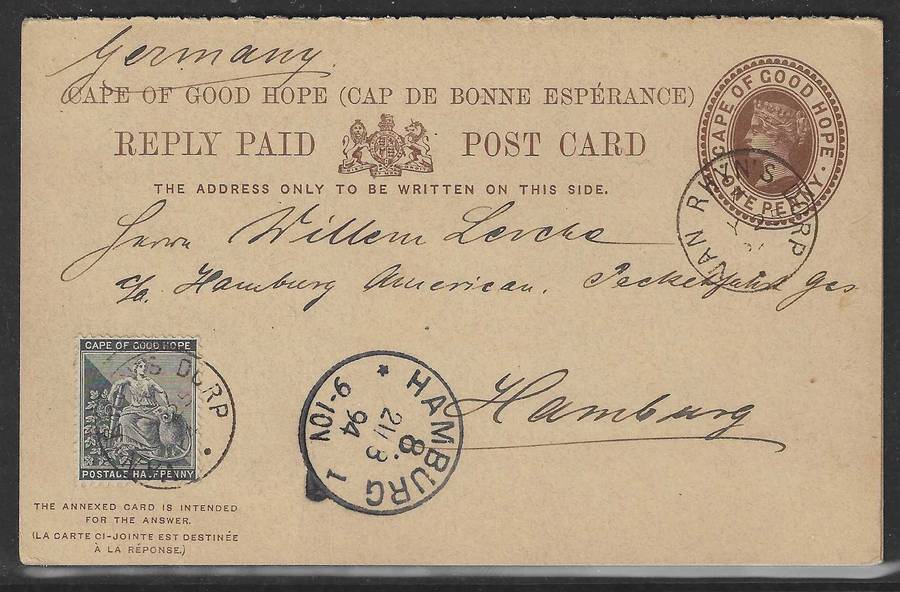 Germany
CAPE OF GOOD HOPE (CAP DE BONNE ESPÉRANCE)
REPLY PAID POST CARD
THE ADDRESS ONLY TO BE WRITTEN ON THIS SIDE.
CAPE OF GOOD HOPE
ONE PENNY.
VAN RHYN'S DORP
Herrn Willem Lercke
c/o. Hamburg American. Packetfahrt Ges
Hamburg
CAPE OF GOOD HOPE
POSTAGE HALFPENNY
'S DORP
* HAMBURG 1
8
21.3
94
9-10V
THE ANNEXED CARD IS INTENDED
FOR THE ANSWER.
(LA CARTE CI-JOINTE EST DESTINÉE
À LA RÉPONSE.)